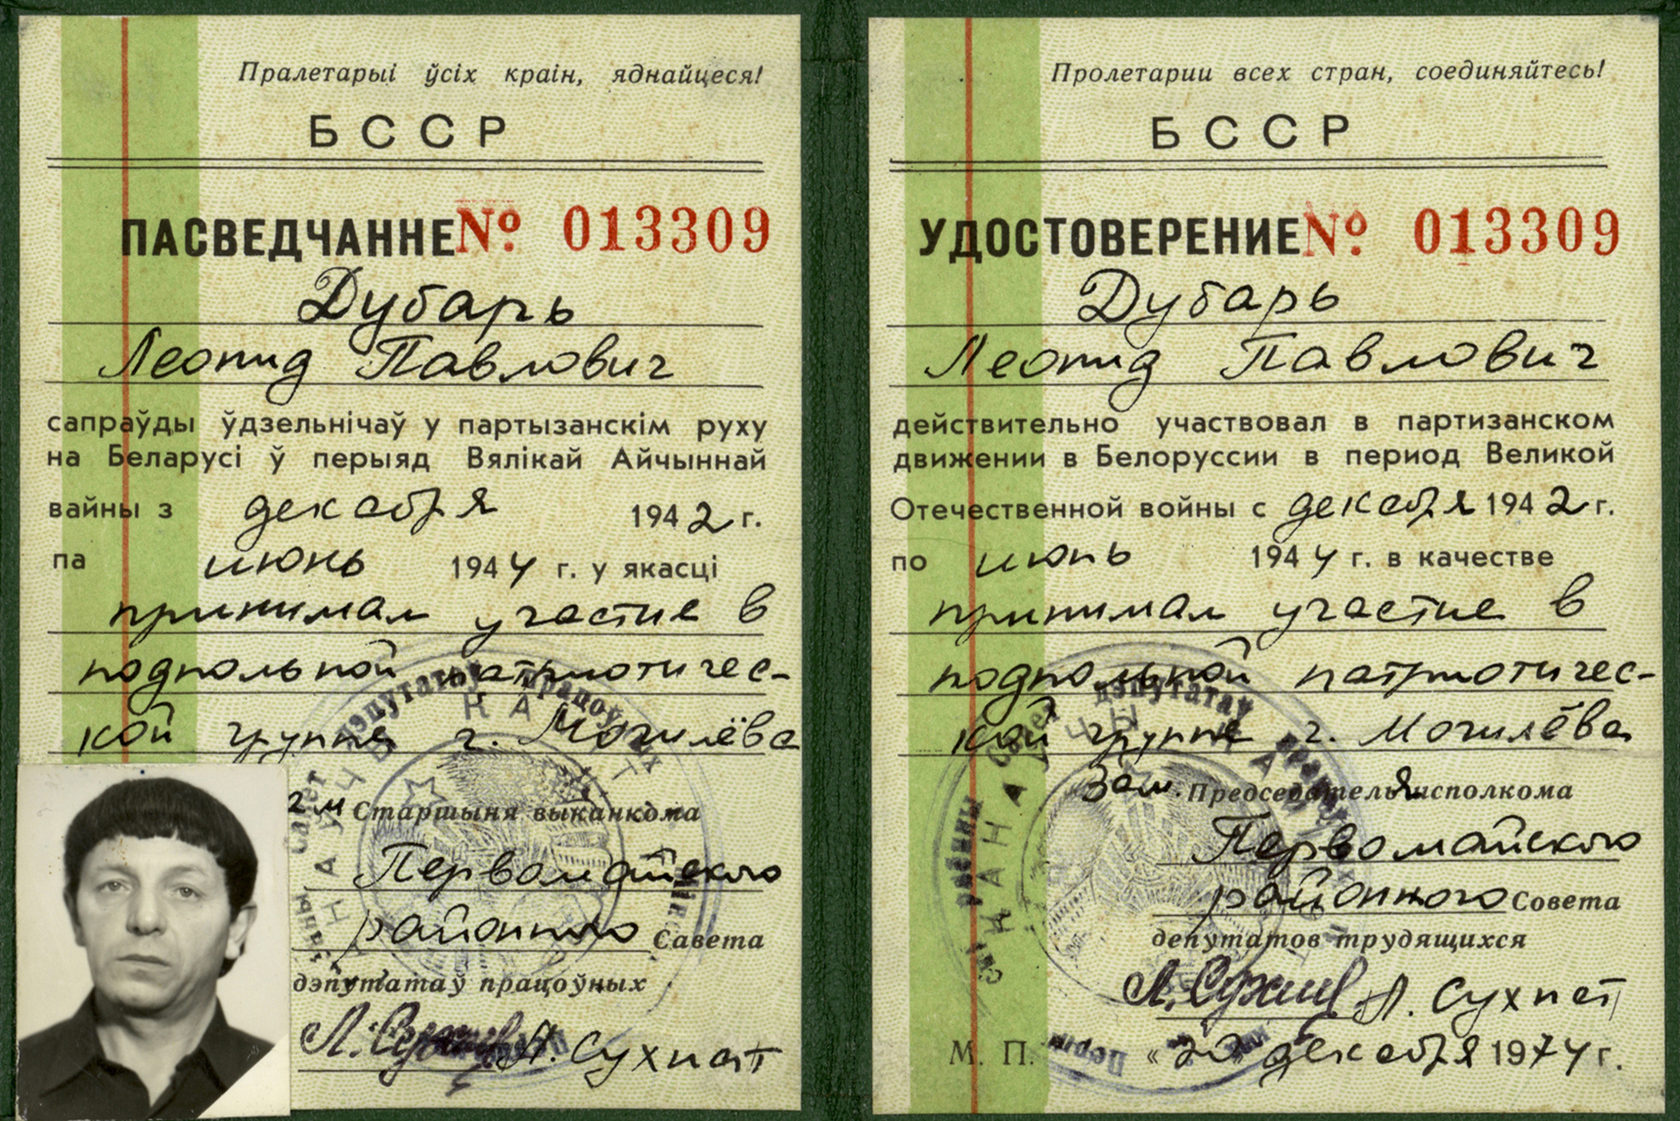 Пралетарыі ўсіх краін, яднайцеся!
БССР
ПАСВЕДЧАННЕ № 013309
Дубарь
Леонид Павлович
сапраўды ўдзельнічаў у партызанскім руху
на Беларусі ў перыяд Вялікай Айчыннай
вайны з декабря 1942 г.
па июнь 1944 г. у якасці
принимал участие в
подпольной патриотичес-
кой группе г. Могилёва
Старшыня выканкома
Первомайского
районного Савета
дэпутатаў працоўных
Пролетарии всех стран, соединяйтесь!
БССР
УДОСТОВЕРЕНИЕ № 013309
Дубарь
Леонид Павлович
действительно участвовал в партизанском
движении в Белоруссии в период Великой
Отечественной войны с декабря 1942 г.
по июнь 1944 г. в качестве
принимал участие в
подпольной патриотичес-
кой группе г. Могилёва
Зам. Председателя исполкома
Первомайского
районного Совета
депутатов трудящихся
М. П. декабря 1974 г.